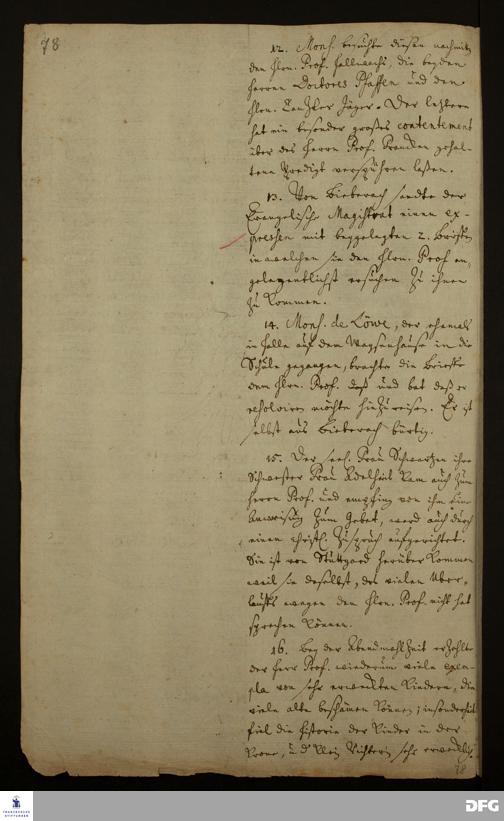 78
12. Mons. besuchte diesen nachmittag
den Hrn. Prof. Hellwachs, die beyden
Herren Doctores Pfaffen und den
Hrn. Canzler Jäger. Der letztere
hat ein besonder großes contentement
über des Herrn Prof. Francken gehal-
tene Predigt verspühren laßen.
13. Von Bieberach sandte der
Evangelische Magistrat einen ex-
pressen mit beygelegten 2. Briefen
in welchen sie den Hrn. Prof. an-
gelegentlichst ersuchen zu ihnen
zu kommen.
14. Mons. de Löwe, der ehemals
in Halle auf dem Waysenhause in die
Schule gegangen, brachte die Briefe
dem Hrn. Prof. und bat daß er
resolviren möchte hinzureisen. Er ist
selbst aus Bieberach bürtig.
15. Der seel. Frau Schwartzen ihre
Schwester Frau kam auch zum
Herrn Prof. und empfing von ihm eine
Anweisung zum Gebet, ward auch durch
einen christl. Zuspruch aufgerichtet.
Sie ist von Stuttgard herüber kommen
weil sie daselbst, des vielen Uber-
lauffs wegen den Hrn. Prof. nicht hat
sprechen können.
16. Bey der Abendmahlzeit erzehlte
der Herr Prof. wiederum viele exem-
pla von sehr erweckten Kindern, die
viele alte beschämen können; insonderheit
fiel die Historie der Kinder in der
Krone, u. d. klein Richterin sehr erwecklich
78
FRANCKESCHE STIFTUNGEN
DFG